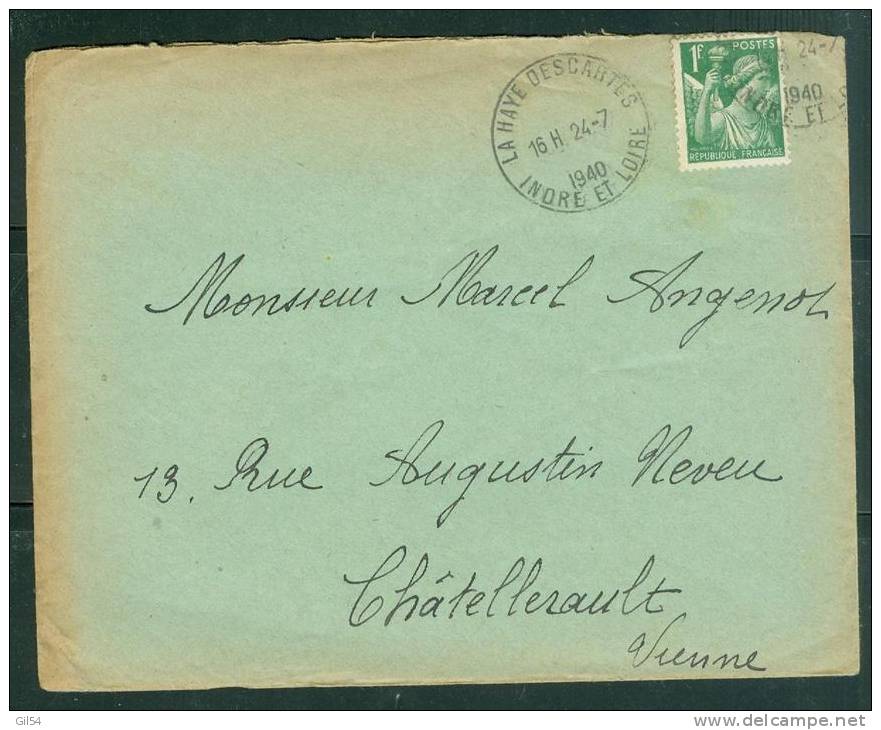 LA HAYE DESCARTES
16 H 24-7
1940
INDRE ET LOIRE
1F POSTES
RÉPUBLIQUE FRANÇAISE
24-7
1940
INDRE ET
Monsieur Marcel Angenot
13. Rue Augustin Neveu
Châtellerault
Vienne
Gil54
delcampe.net